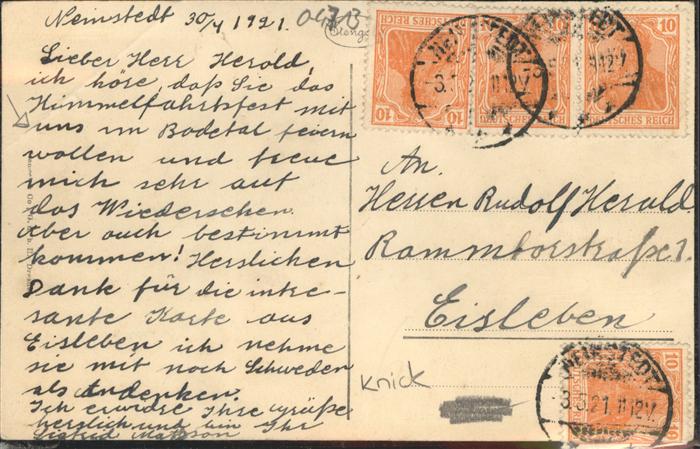 Neinstedt 30/4 1921.
Lieber Herr Herold,
ich höre, daß Sie das
Himmelfahrtsfest mit
uns im Bodetal feiern
wollen und freue
mich sehr auf
das Wiedersehen.
Aber auch bestimmt
kommen! Herslichen
Dank für die intre-
sante Karte aus
Eisleben ich nehme
sie mit noch Schweden
als Andenken.
Ich erwidre Ihre Grüße
herslich und bin Ihr
Sigrid Mattsson
0473
10
DEUTSCHES REICH
10
DEUTSCHES REICH
10
DEUTSCHES REICH
NEINSTEDT
3.5.21.11-12V.
An.
Herren Rudolf Herold
Rammtorstraße 1.
Eisleben
Knick
NEINSTEDT
3.5.21.11-12V.
10
10